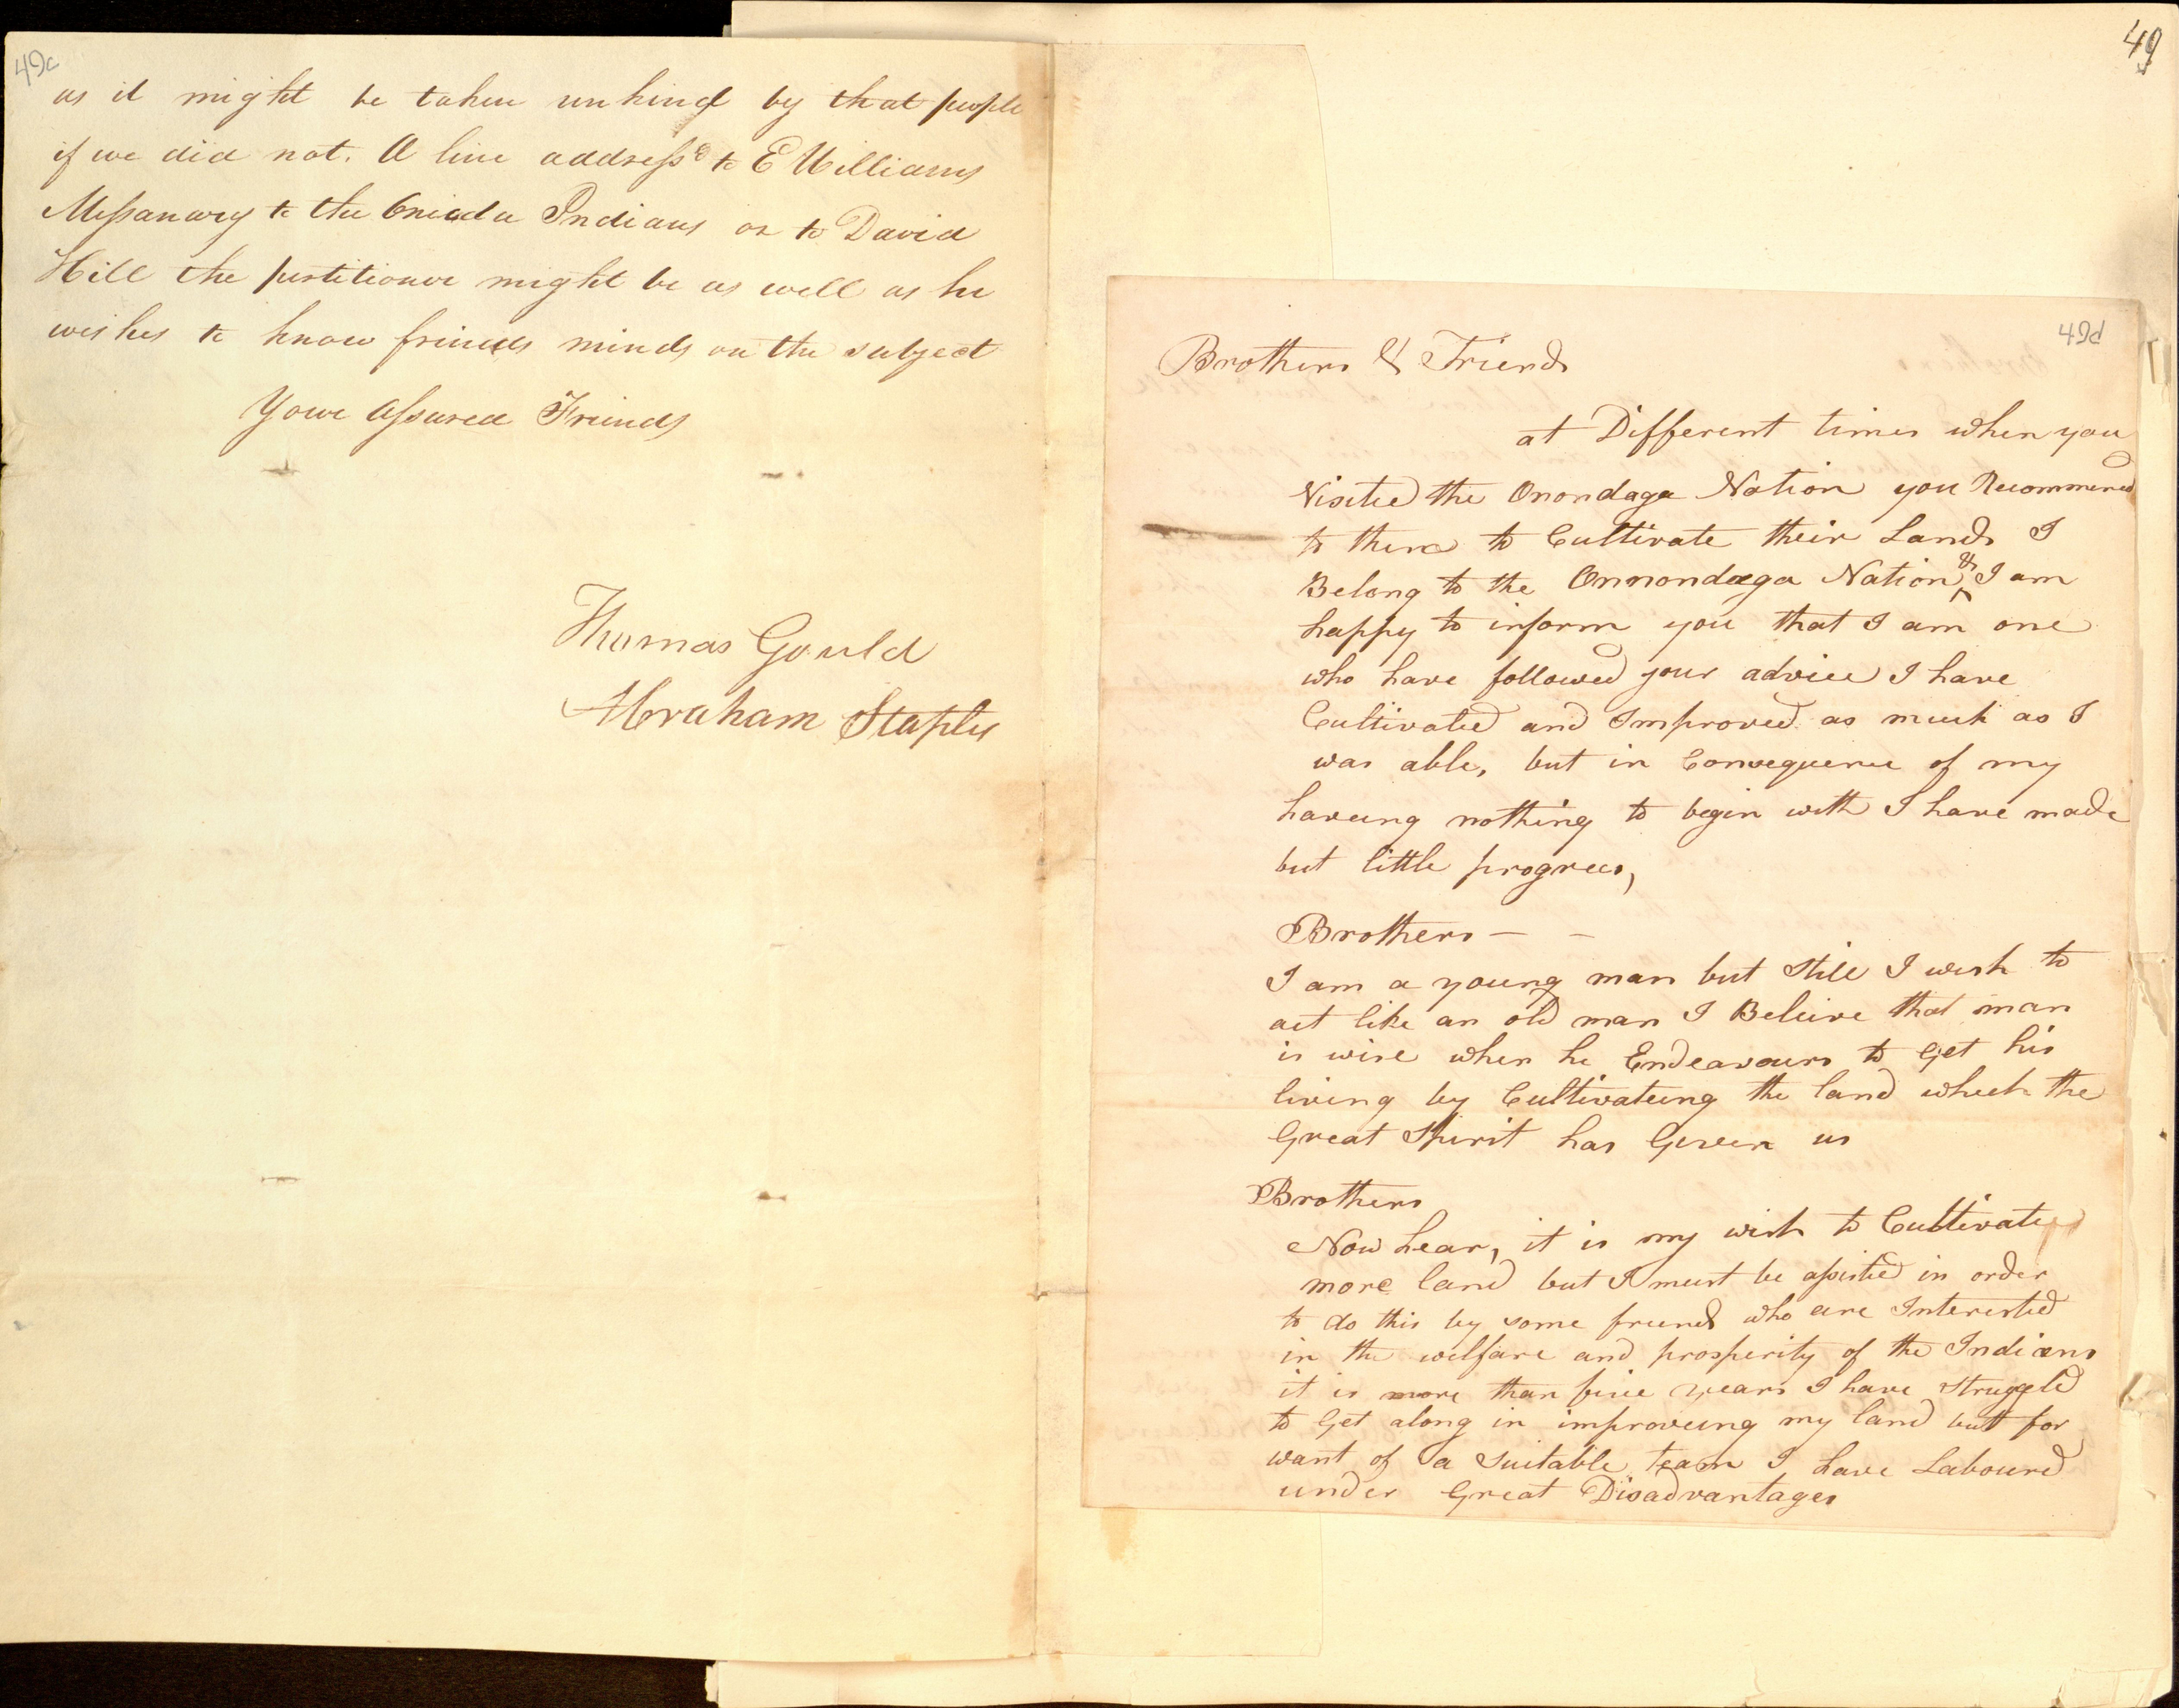 49c
as it might be taken unkind by that people
if we did not. A line addressd to E Williams
Missanary to the Oniada Indians or to David
Hill the pertitionor might be as well as he
wishes to know friends minds on the subject
Your assured Friends
Thomas Gould
Abraham Staples
49
49d
Brothers & Friends
at Different times when you
Visited the Onondaga Nation you Recommend
to them to Cultivate their Lands I
Belong to the Onnondaga Nation & I am
happy to inform you that I am one
who have followed your advice I have
Cultivated and Improved as much as I
was able, but in Consequence of my
haveing nothing to begin with I have made
but little progress,
Brothers – –
I am a young man but still I wish to
act like an old man I Beleive that man
is wise when he Endeavours to Get his
living by Cultivateing the land which the
Great Spirit has Given us
Brothers
Now hear, it is my wish to Cultivate
more land but I must be assisted in order
to do this by some friends who are Interested
in the welfare and prosperity of the Indians
it is more than five years I have struggled
to Get along in improveing my land but for
want of a suitable team I have Laboured
under Great Disadvantages